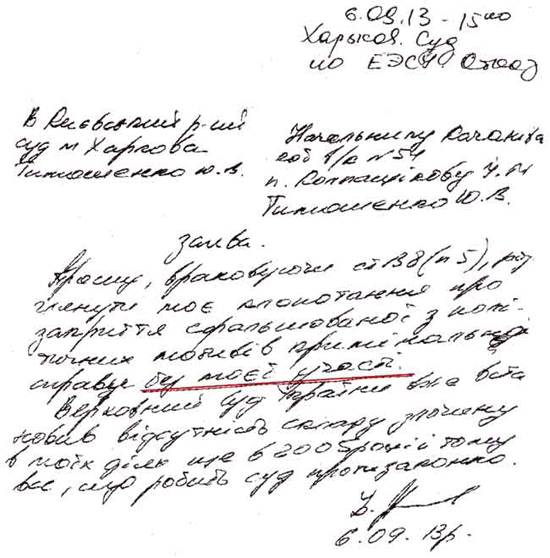 6.09.13 - 15:00
Харьков. Суд
по ЕЭСУ. Отказ
В Київський р-ний
суд м Харкова
Тимошенко Ю.В.
Начальнику Качанівсь
кої в/к №54
п. Колпащікову І.
Тимошенко Ю.В.
Заява.
Прошу, враховуючи ст 138 (п 5), роз
глянути моє клопотання про
закриття сфальшованої з полі-
тичних мотивів кримінальної
справи без моєї участі.
Верховний Суд України вже вста
новив відсутність складу злочину
в моїх діях ще в 2005 році й тому
все, що робить суд протизаконно.
6.09.13р.